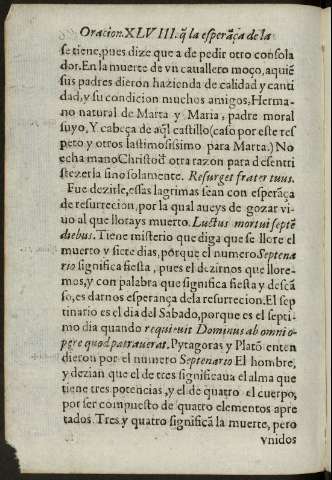 Oracion.XLVIII.q̃ la esperãça de la
se tiene, pues dize que a de pedir otro consola
dor. En la muerte de vn cauallero moço, a quiẽ
sus padres dieron hazienda de calidad y canti
dad, y su condicion muchos amigos, Herma-
no natural de Marta y Maria, padre moral
suyo, Y cabeça de aq̃l castillo (caso por este res
peto y otros lastimosissimo para Marta.) No
echa mano Christo otra razon para desentri
stezerla sino solamente. Resurget frater tuus.
Fue dezirle, essas lagrimas sean con esperãça
de resurrecion, por la qual aueys de gozar vi-
uo al que llorays muerto. Luctus mortui septẽ
diebus. Tiene misterio que diga que se llore el
muerto y siete dias, porque el numero Septena
rio significa fiesta, pues el dezirnos que llore-
mos, y con palabra que significa fiesta y descã
so, es darnos esperança dela resurrecion. El sep
tinario es el dia del Sabado, porque es el septi-
mo dia quando requieuit Dominus ab omni o-
pere quod patrauerat. Pytagoras y Platõ enten
dieron por el numero Septenario El hombre,
y dezian que el de tres significaua el alma que
tiene tres potencias, y el de quatro el cuerpo,
por ser compuesto de quatro elementos apre
tados. Tres y quatro significã la muerte, pero
vnidos